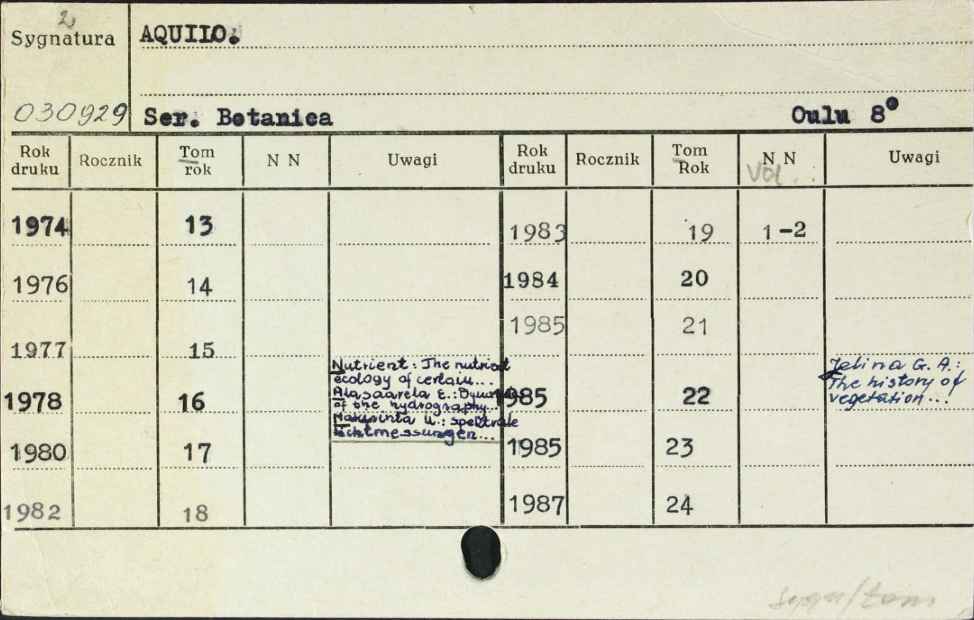 2
Sygnatura AQUILO.
030929 Ser. Botanica Oulu 8°
Rok druku Rocznik Tom rok N N Uwagi Rok druku Rocznik Tom Rok N N Uwagi
Vol.
1974 13 1983 19 1-2
1976 14 1984 20
1985 21
1977 15
Nutrient: The nutrient
ecology of certain...
1978 16 Alasaarela E.: 1985 22
of the hydrography...
U.: spektrale
Lichtmessungen...
Jelina G. A.:
The history of
vegetation...
1980 17 1985 23
1982 18 1987 24